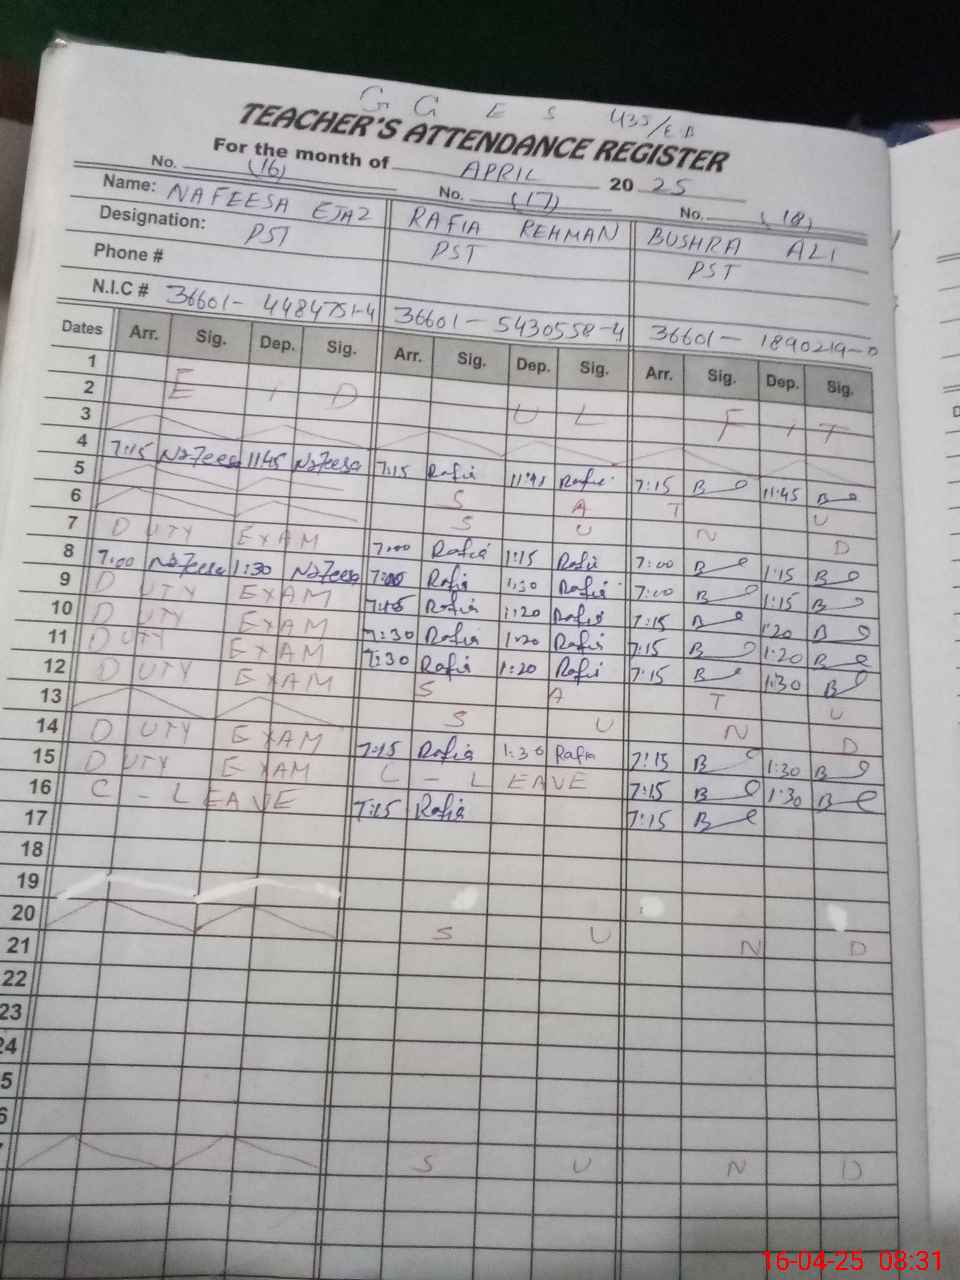 G G E S 435/EB
TEACHER'S ATTENDANCE REGISTER
For the month of APRIL 2025
No. (16) No. (17) No. (18)
Name: NAFEESA EJAZ RAFIA REHMAN BUSHRA ALI
Designation: PST PST PST
Phone #
N.I.C # 36601-4484751-4 36601-5430558-4 36601-1890219-0
Dates Arr. Sig. Dep. Sig. Arr. Sig. Dep. Sig. Arr. Sig. Dep. Sig.
1
2 E I D U L F I T
3
4 7:15 Nafeesa 1145 Nafeesa 7:15 Rafia Rafia 7:15 B 11:45 B
5 S A T U
6 S U N D
7 DUTY EXAM 7:00 Rafia 1:15 Rafia 7:00 B 1:15 B
8 7:00 Nafeesa 1:30 Nafeesa Rafia 1:30 Rafia 7:00 B 1:15 B
9 DUTY EXAM Rafia 1:20 Rafia 7:15 B 1:20 B
10 DUTY EXAM 7:30 Rafia 1:20 Rafia 7:15 B 1:20 B
11 DUTY EXAM 7:30 Rafia 1:20 Rafia 7:15 B 1:30 B
12 DUTY EXAM S A T U
13 S U N D
14 DUTY EXAM 7:15 Rafia 1:30 Rafia 7:15 B 1:30 B
15 DUTY EXAM C - LEAVE 7:15 B 1:30 B
16 C - LEAVE 7:15 Rafia 7:15 B
17
18
19
20 S U N D
21
22
23
24
5
6
S U N D
16-04-25 08:31